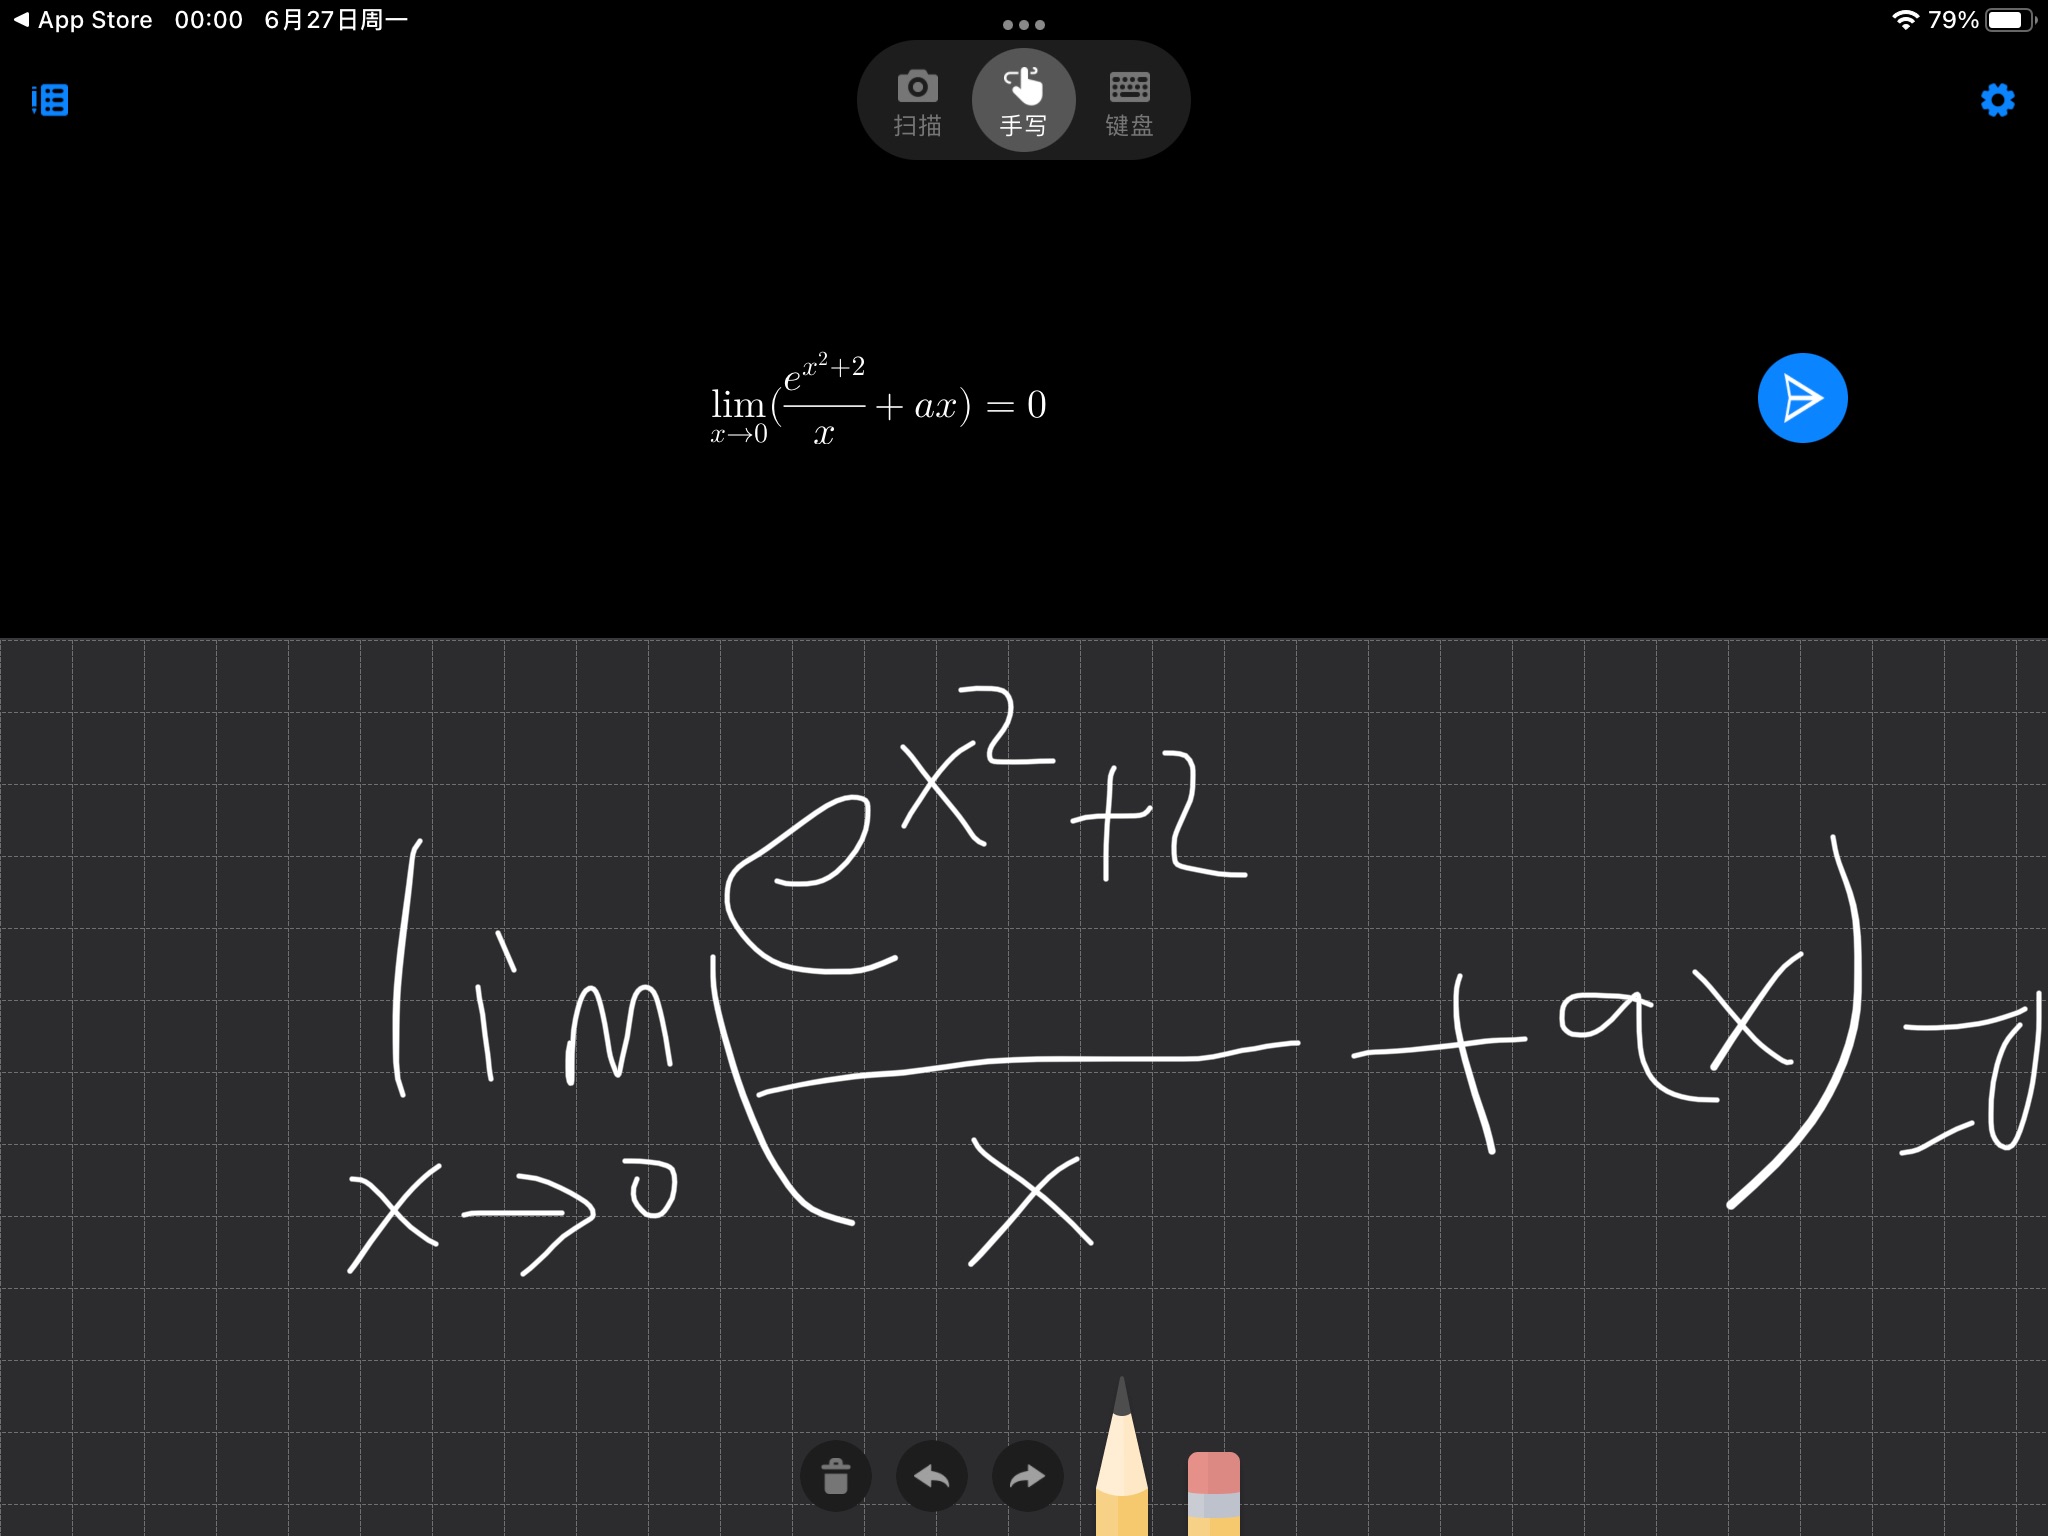 App Store 00:00 6月27日周一 79%
扫描 手写 键盘
lim(e^{x^2+2}/x + ax) = 0
x→0
lim(e^{x^2+2}/x + ax) = 0
x→0